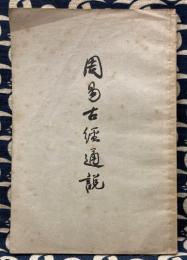 周易古經通說